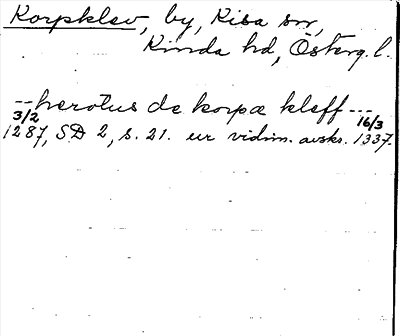 Korpklev, by, Kisa sn,
Kinda hd, Österg. l.
-- herotus de korpæ kleff ---
3/2 16/3
1287, SD 2, s. 21. ur vidim. avskr. 1337.